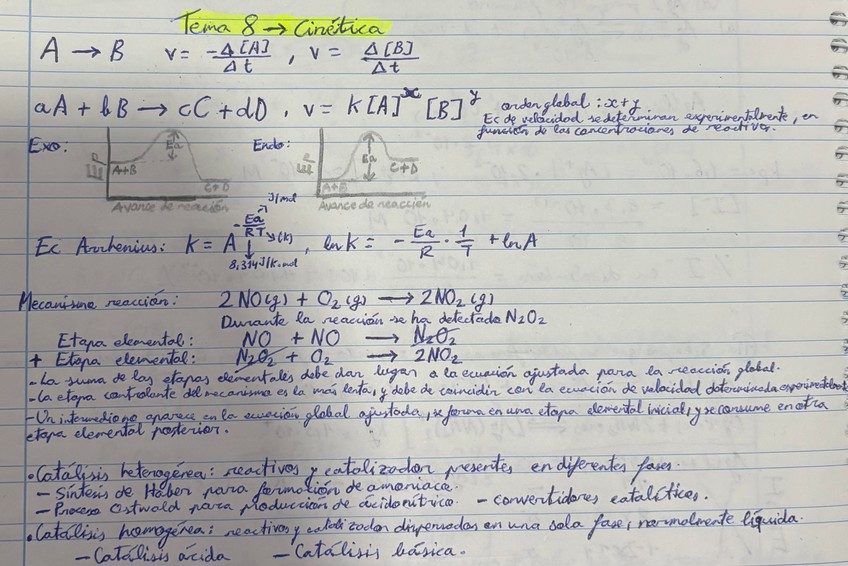 Tema 8 → Cinética
A → B   v = -Δ[A]/Δt , v = Δ[B]/Δt
aA + bB → cC + dD , v = K[A]^x [B]^y   orden global: x+y
Ec de velocidad se determinan experimentalmente, en
función de las concentraciones de reactivos.
Exo:   Endo:
Ea   Ea
EP   A+B   C+D   EP   A+B   C+D
Avance de reacción   Avance de reacción
J/mol
Ec Arrhenius: K = A^(-Ea/RT) → (K) , ln K = - Ea/R · 1/T + ln A
8,314 J/K·mol
Mecanismo reacción:   2 NO(g) + O₂(g) → 2NO₂(g)
Durante la reacción se ha detectado N₂O₂
Etapa elemental:   NO + NO → N₂O₂
+ Etapa elemental:   N₂O₂ + O₂ → 2NO₂
- La suma de las etapas elementales debe dar lugar a la ecuación ajustada para la reacción global.
- La etapa controlante del mecanismo es la más lenta, y debe de coincidir con la ecuación de velocidad determinada experimentalment
- Un intermedio no aparece en la ecuación global ajustada, se forma en una etapa elemental inicial, y se consume en otra
etapa elemental posterior.
• Catálisis heterogénea: reactivos y catalizador presentes en diferentes fases.
- Síntesis de Haber para formación de amoniaco.
- Proceso Ostwald para producción de ácido nítrico. - convertidores catalíticos.
• Catálisis homogénea: reactivos y catalizador dispersados en una sola fase, normalmente líquida.
- Catálisis ácida   - Catálisis básica.